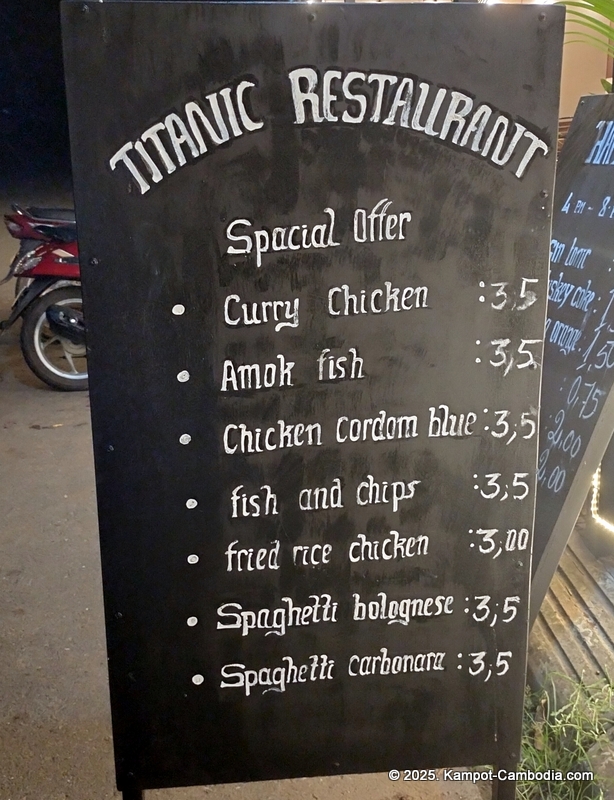 TITANIC RESTAURANT
Spacial Offer
• Curry Chicken :3,5
• Amok fish :3,5
• Chicken Cordom blue :3,5
• fish and chips :3,5
• fried rice chicken :3,00
• Spaghetti bolognese :3,5
• Spaghetti carbonara :3,5
4 PM - 8
orange 1,50
: 0,75
: 2,00
2,00
© 2025. Kampot-Cambodia.com